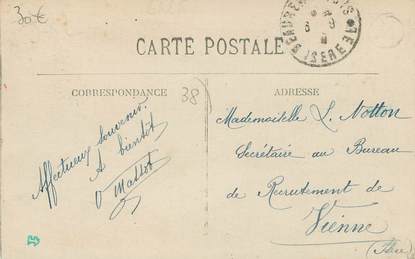 30€
CARTE POSTALE
ISERE
CORRESPONDANCE
38
ADRESSE
Affectueux souvenir.
A bientôt
Mademoiselle L. Notton
Secrétaire au Bureau
de Recrutement de
Vienne
(Isère)